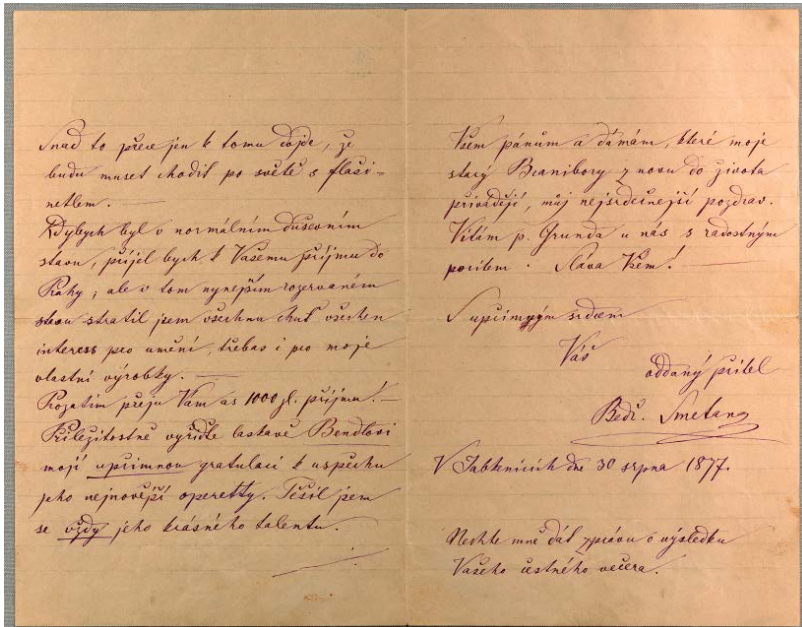 Snad to přece jen k tomu dojde, že
budu muset chodit po světě s flaši-
netlem. —
Kdybych byl v normálním duševním
stavu, přijel bych k Vašemu příjmu do
Prahy, ale v tom nynějším rozervaném
stavu stratil jem všechnu chuť všechen
interess pro umění, třebas i pro moje
vlastní výrobky. —
Prozatím přeju Vám as 1000 zl. příjmu! —
Příležitostně vyřiďte laskavě Bendlovi
mojí upřímnou gratulaci k uspěchu
jeho nejnovější operetty. Těšil jsem
se vždy jeho krásného talentu.
Všem pánům a dámám, které moje
starý Branibory z novu do života
přivádějí, můj nejsrdečnejší pozdrav.
Vítám p. Grunda u nás s radostným
pocitem. Sláva Všem! —
S upřímným srdcem
Váš
oddaný přítel
Bedř. Smetana
V Jabkenicích dne 30 srpna 1877.
Nechte mně dát zprávu o výsledku
Vašeho čestného večera.